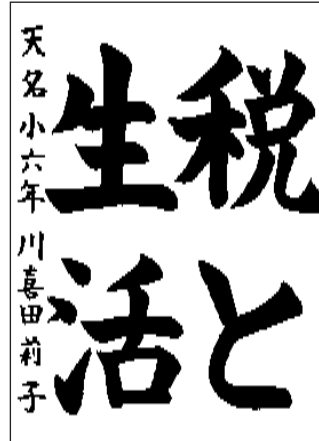 税と
生活
天名小六年 川喜田莉子